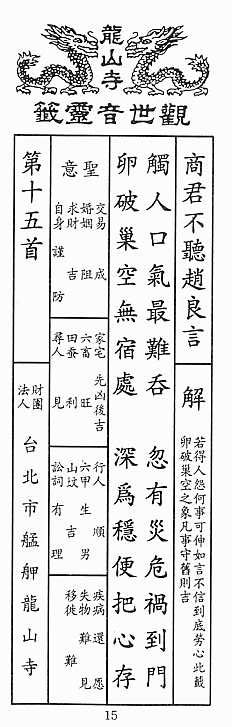 龍山寺
觀世音靈籤
商君不聽趙良言
解
若得人怨何事可伸如言不信到底勞心此籤
卵破巢空之象凡事守舊則吉
觸人口氣最難吞　忽有災危禍到門
卵破巢空無宿處　深爲穩便把心存
聖意
交易　成
婚姻　阻
求財　吉
自身　謹防
家宅　先凶後吉
六畜　旺
田蚕　利
尋人　見
行人　順
六甲　生男
山坟　吉
訟詞　有理
疾病　還愿
失物　難見
移徙　難
第十五首
財團
法人
台北市艋舺龍山寺
15